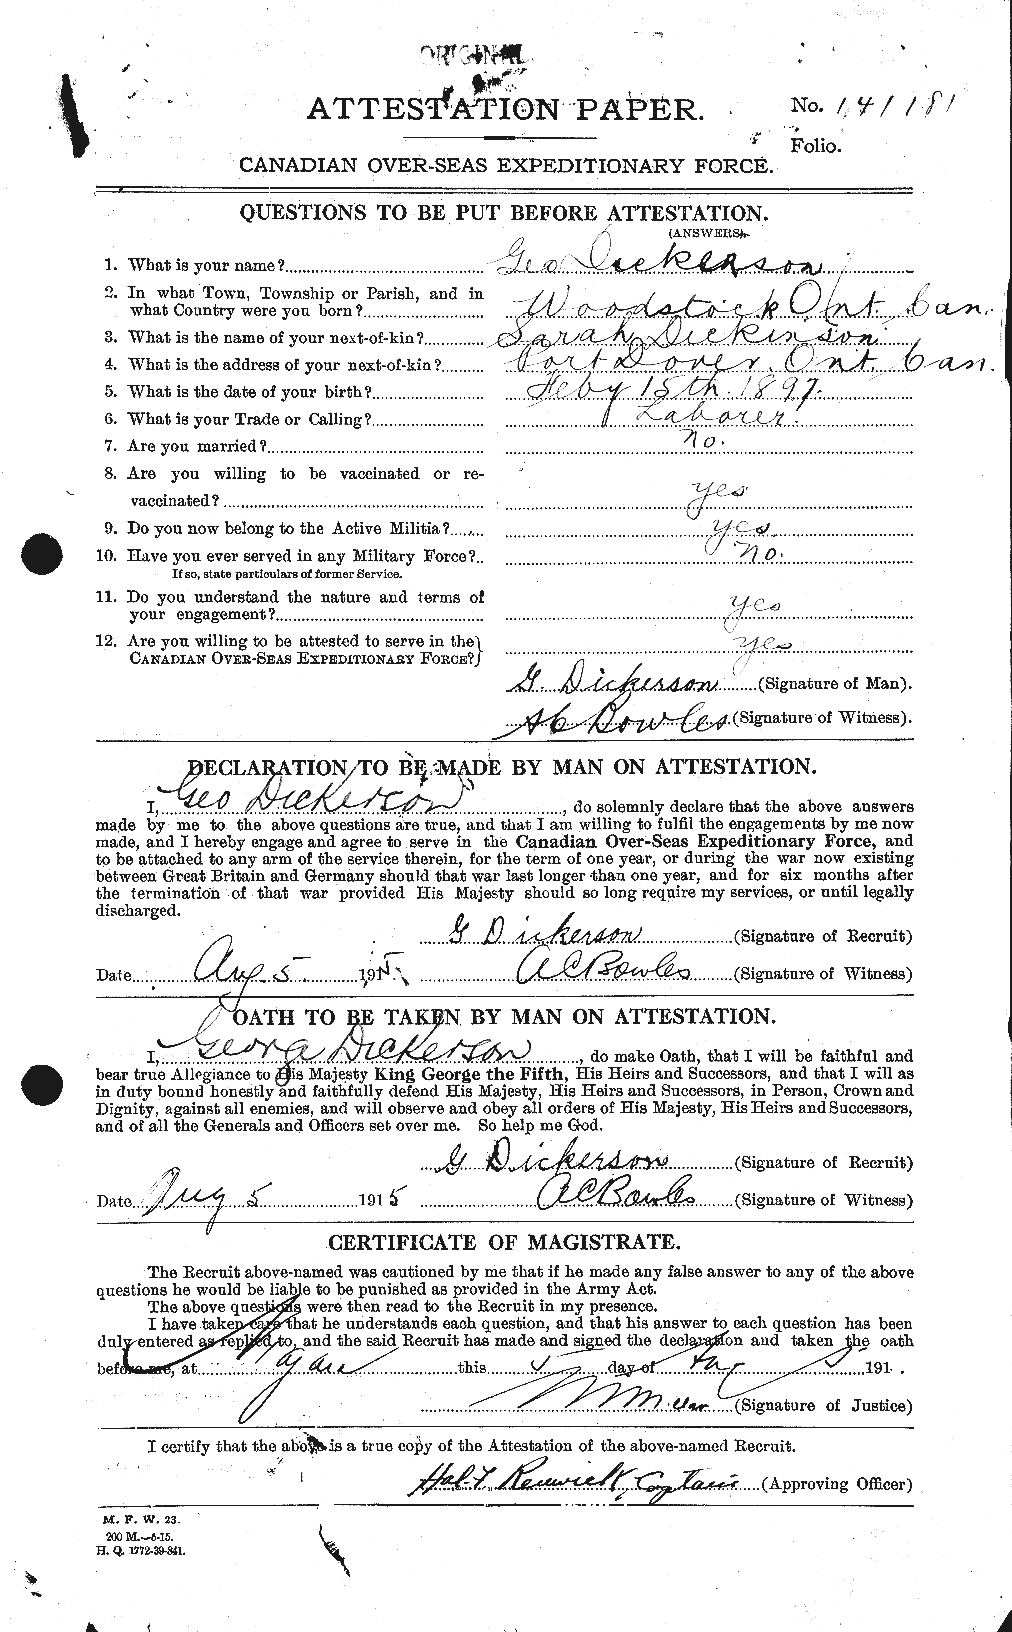 ORIGINAL
ATTESTATION PAPER.
No. 141181
Folio.
CANADIAN OVER-SEAS EXPEDITIONARY FORCE.
QUESTIONS TO BE PUT BEFORE ATTESTATION.
(ANSWERS).
1. What is your name? Geo Dickerson
2. In what Town, Township or Parish, and in
what Country were you born? Woodstock Ont. Can.
3. What is the name of your next-of-kin? Sarah Dickinson
4. What is the address of your next-of-kin? Port Dover. Ont. Can.
5. What is the date of your birth? Feby 15th. 1897.
6. What is your Trade or Calling? Laborer.
7. Are you married? No.
8. Are you willing to be vaccinated or re-
vaccinated? yes
9. Do you now belong to the Active Militia? yes
10. Have you ever served in any Military Force? No.
If so, state particulars of former Service.
11. Do you understand the nature and terms of
your engagement? yes
12. Are you willing to be attested to serve in the
CANADIAN OVER-SEAS EXPEDITIONARY FORCE? yes
G. Dickerson (Signature of Man).
AC Bowles (Signature of Witness).
DECLARATION TO BE MADE BY MAN ON ATTESTATION.
I, Geo Dickerson, do solemnly declare that the above answers
made by me to the above questions are true, and that I am willing to fulfil the engagements by me now
made, and I hereby engage and agree to serve in the Canadian Over-Seas Expeditionary Force, and
to be attached to any arm of the service therein, for the term of one year, or during the war now existing
between Great Britain and Germany should that war last longer than one year, and for six months after
the termination of that war provided His Majesty should so long require my services, or until legally
discharged.
G Dickerson (Signature of Recruit)
Date Aug 5 1915 AC Bowles (Signature of Witness)
OATH TO BE TAKEN BY MAN ON ATTESTATION.
I, Georg Dickerson, do make Oath, that I will be faithful and
bear true Allegiance to His Majesty King George the Fifth, His Heirs and Successors, and that I will as
in duty bound honestly and faithfully defend His Majesty, His Heirs and Successors, in Person, Crown and
Dignity, against all enemies, and will observe and obey all orders of His Majesty, His Heirs and Successors,
and of all the Generals and Officers set over me. So help me God.
G Dickerson (Signature of Recruit)
Date Aug 5 1915 AC Bowles (Signature of Witness)
CERTIFICATE OF MAGISTRATE.
The Recruit above-named was cautioned by me that if he made any false answer to any of the above
questions he would be liable to be punished as provided in the Army Act.
The above questions were then read to the Recruit in my presence.
I have taken care that he understands each question, and that his answer to each question has been
duly entered as replied to, and the said Recruit has made and signed the declaration and taken the oath
before me, at this 5 day of 191 .
(Signature of Justice)
I certify that the above is a true copy of the Attestation of the above-named Recruit.
Hal. F. Renwick, Captain (Approving Officer)
M. F. W. 23.
200 M.—6-15.
H. Q. 1772-39-841.